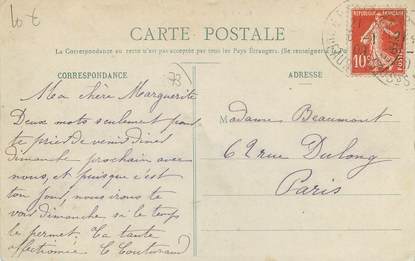 CARTE POSTALE
La Correspondance au recto n'est pas acceptée par tous les Pays Étrangers. (Se renseigner à la
CORRESPONDANCE
ADRESSE
73
REPUBLIQUE FRANÇAISE
10
Ma chère Marguerite
Deux mots seulement pour
te prier de venir diner
dimanche prochain avec
nous, et puisque c'est
ton jour, nous irons te
voir dimanche si le temps
le permet. Ta tante
affectionnée
M
Madame Beaumont
62 rue Dulong
Paris